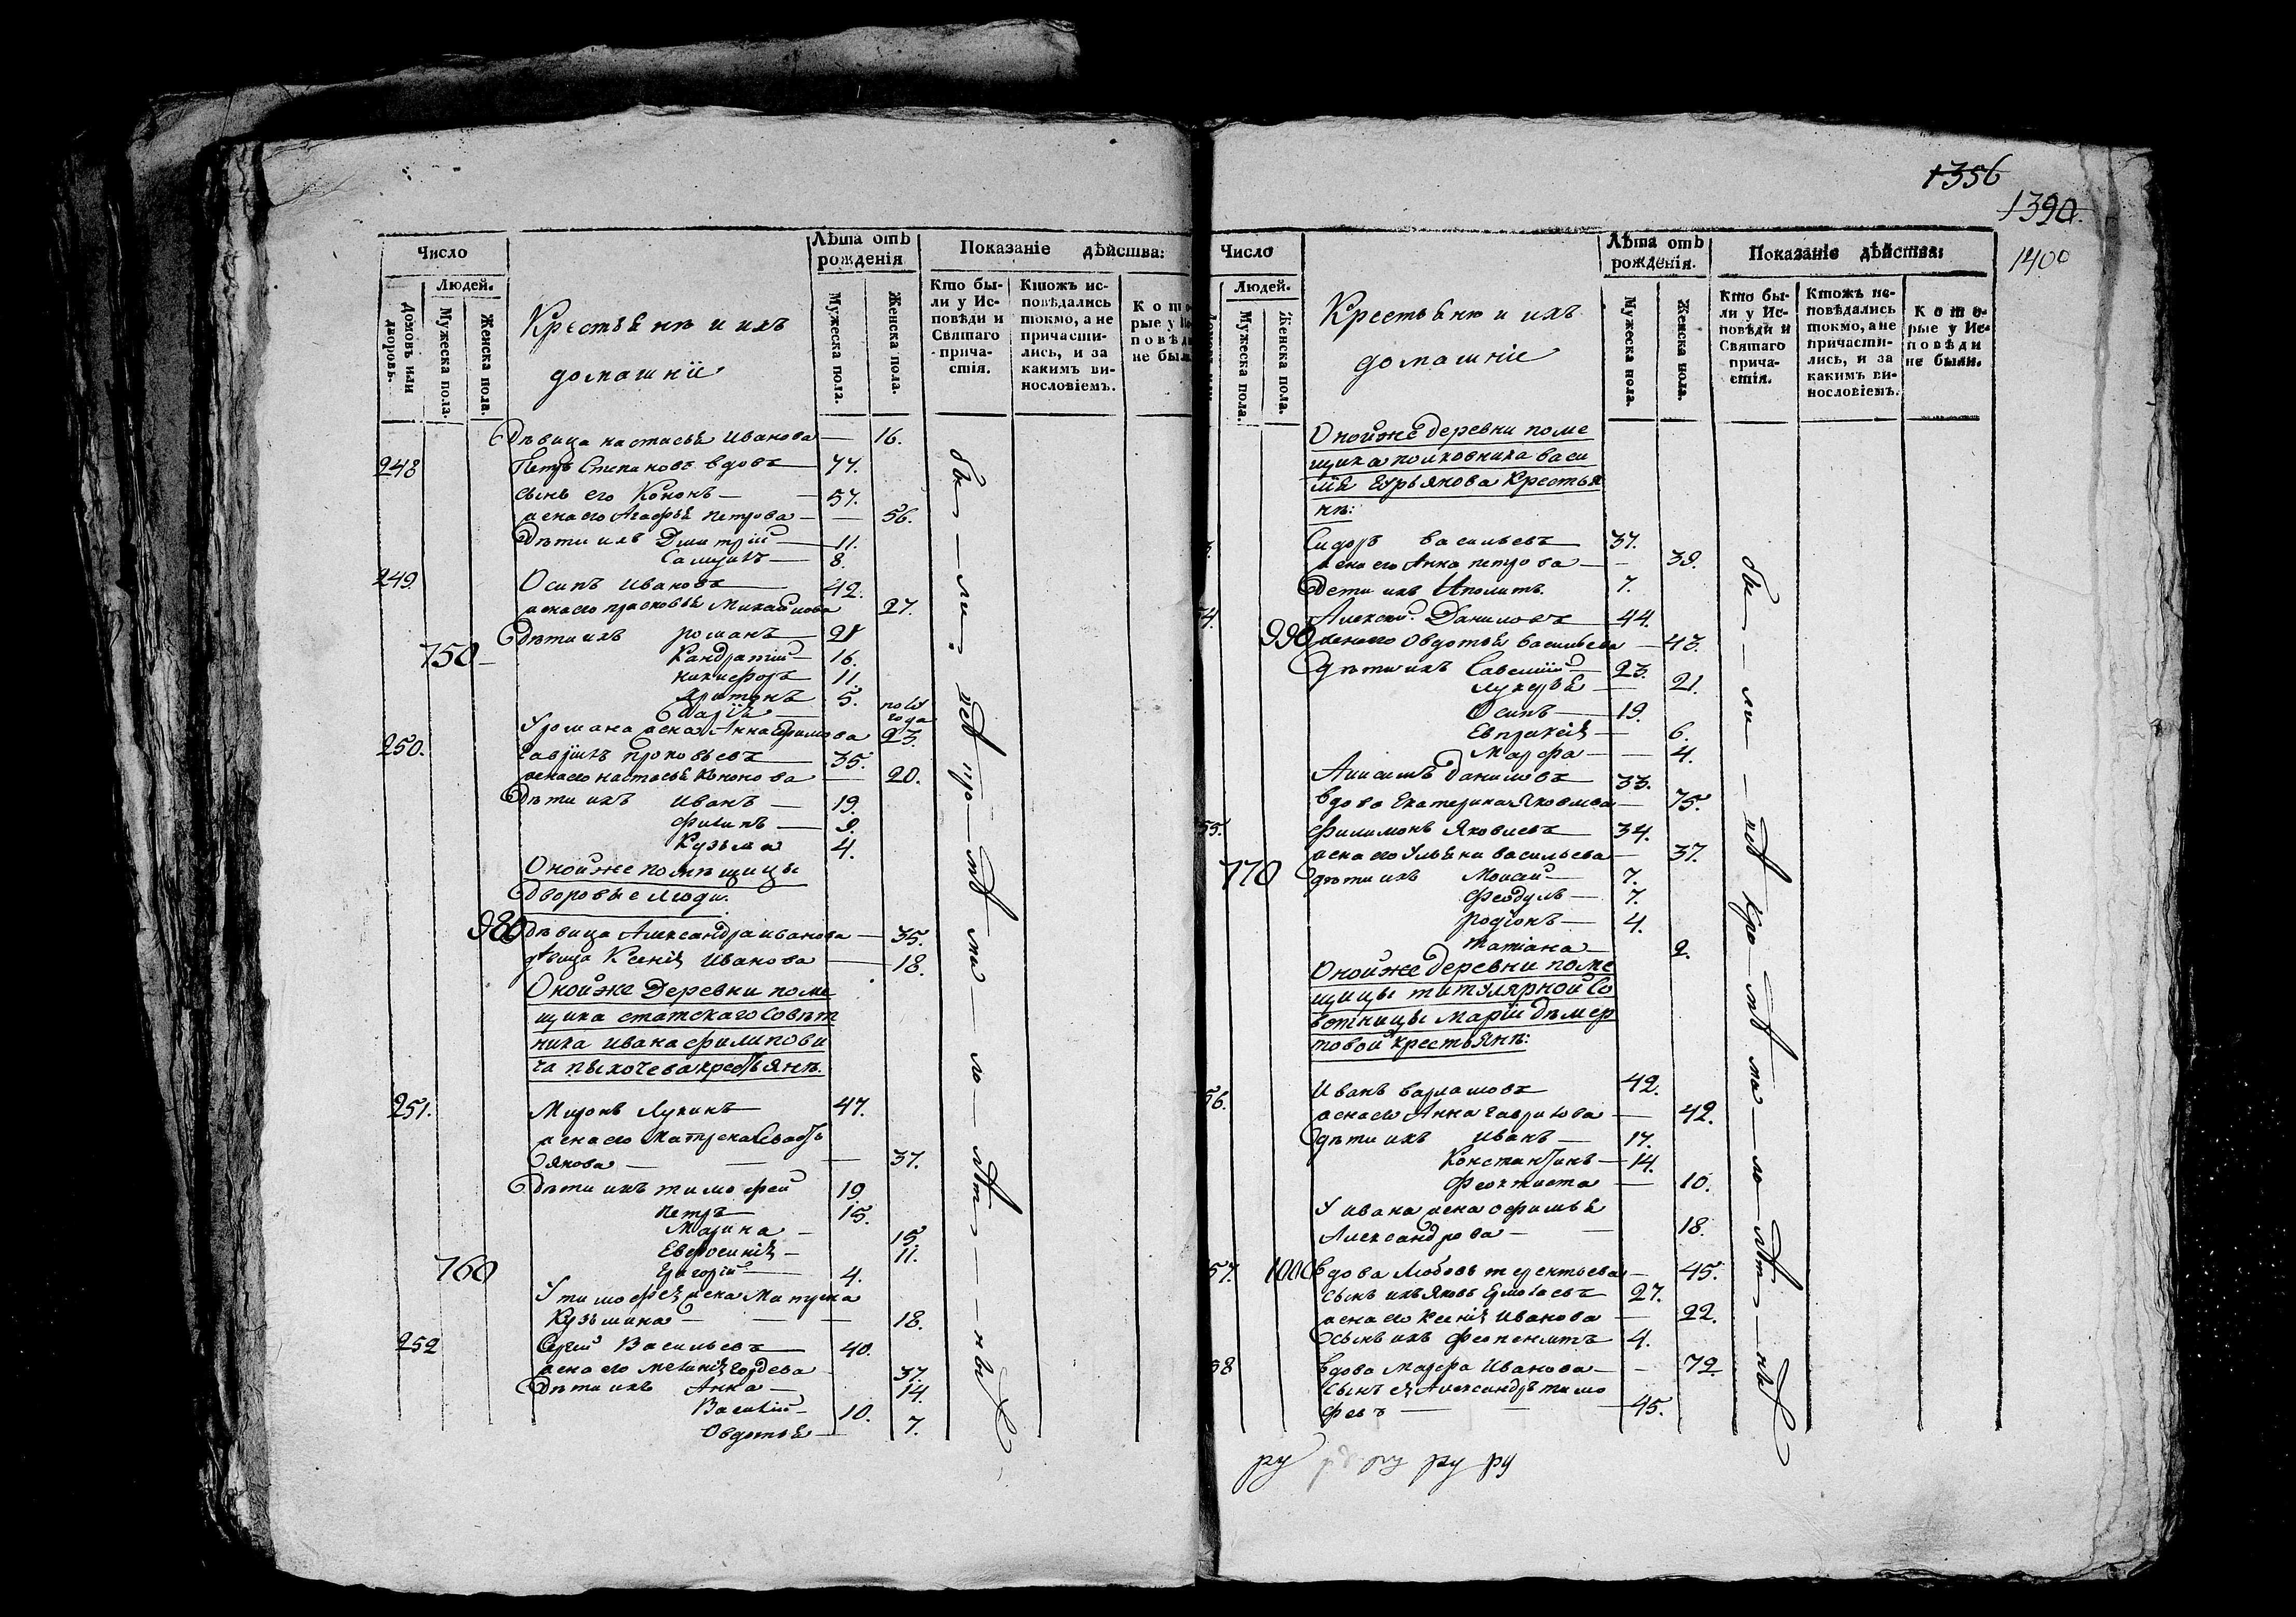 Число
Людей.
Домовъ или дворовъ.
Мужеска пола.
Женска пола.
Крестьянѣ и ихъ
домашніи
Лѣта отъ рожденія
Мужеска пола.
Женска пола.
Показаніе дѣйства:
Кто бы-
ли у Ис-
повѣди и
Святаго
прича-
стія.
Ктожъ ис-
повѣдались
токмо, а не
причасти-
лись, и за
какимъ ви-
нословіемъ.
Дѣвица настасья Иванова — 16.
248 Петръ Степановъ вдовъ 77.
сынъ его Кононъ — 57.
жена его Агафья петрова — 56.
Дѣти ихъ Дмитрій — 11.
8.
249. Осипъ Ивановъ 42.
жена его прасковья Михайлова 27.
Дѣти ихъ романъ 21
750 Кандратій 16.
никифоръ 11.
5.
Дарія полъ года
У романа жена Анна Ефимова 23.
250. Гаврилъ прокофьевъ 35.
жена его настасья Кононова — 20.
Дѣти ихъ Иванъ — 19.
Филипъ — 9.
Кузьма 4.
Оной же помѣщицы
Дворовые люди.
980 Дѣвица Александра иванова — 35.
дѣвица Ксенія Иванова — 18.
Оной же Деревни поме
щика статскаго Совѣт
ника ивана филипови
ча пыхочева крестьянѣ.
251. Миронъ Лукинъ 47.
жена его матрена Сваст
ьянова — 37.
Дѣти ихъ тимофей 19.
петръ 15.
Марина — 15.
Евфросинія — 11.
760 Григорій 4.
У тимофея жена Матрена
Кузьмина — 18.
252 Сергей Васильевъ 40.
жена его меланія гордева 37.
Дѣти ихъ Анна — 14.
Василій — 10.
Овдотья — 7.
1356
1390.
1400
Число
Людей.
Мужеска пола.
Женска пола.
Крестьянѣ и ихъ
домашніе
Лѣта отъ рожденія.
Мужеска пола.
Женска пола.
Показаніе дѣйства:
Кто бы-
ли у Ис-
повѣди и
Святаго
прича-
стія.
Ктожъ ис-
повѣдались
токмо, а не
причасти-
лись, и за
какимъ ви-
нословіемъ.
Кото-
рые у Ис-
повѣди
не были.
Оной же деревни поме
щика полковника васи
лья крестья
нѣ:
Сидоръ васильевъ 37.
жена его Анна петрова — 39.
Дети ихъ Иполитъ. 7.
Алексей Даниловъ 44.
990 жена его Овдотья васильева — 43.
Дѣти ихъ Савелій 23.
лукерья — 21.
Осипъ — 19.
Евпраксія — 6.
Марфа — 4.
Анисимъ Даниловъ 33.
вдова Екатерина Яковлева — 75.
55. Филимонъ Яковлевъ 34.
жена его Ульяна васильева — 37.
770 дѣти ихъ Моисей — 7.
Феодулъ — 7.
родіонъ — 4.
татіана — 2.
Оной же деревни поме
щицы титулярной Со
вѣтницы Маріи Дѣмер
товой крестьянѣ:
56. Иванъ варламовъ 42.
жена его Анна гаврилова — 42.
Дѣти ихъ Иванъ — 17.
Константинъ — 14.
Феоктиста — 10.
У ивана жена офимья
Александрова — 18.
57. 1000 вдова Любовь терентьева — 45.
сынъ ихъ Яковъ Ермолаевъ 27.
жена его Ксенія Иванова — 22.
Сынъ ихъ 4.
58 вдова марфа Иванова — 72.
сынъ ея Александръ тимо
феевъ — 45.
ру ру ру ру